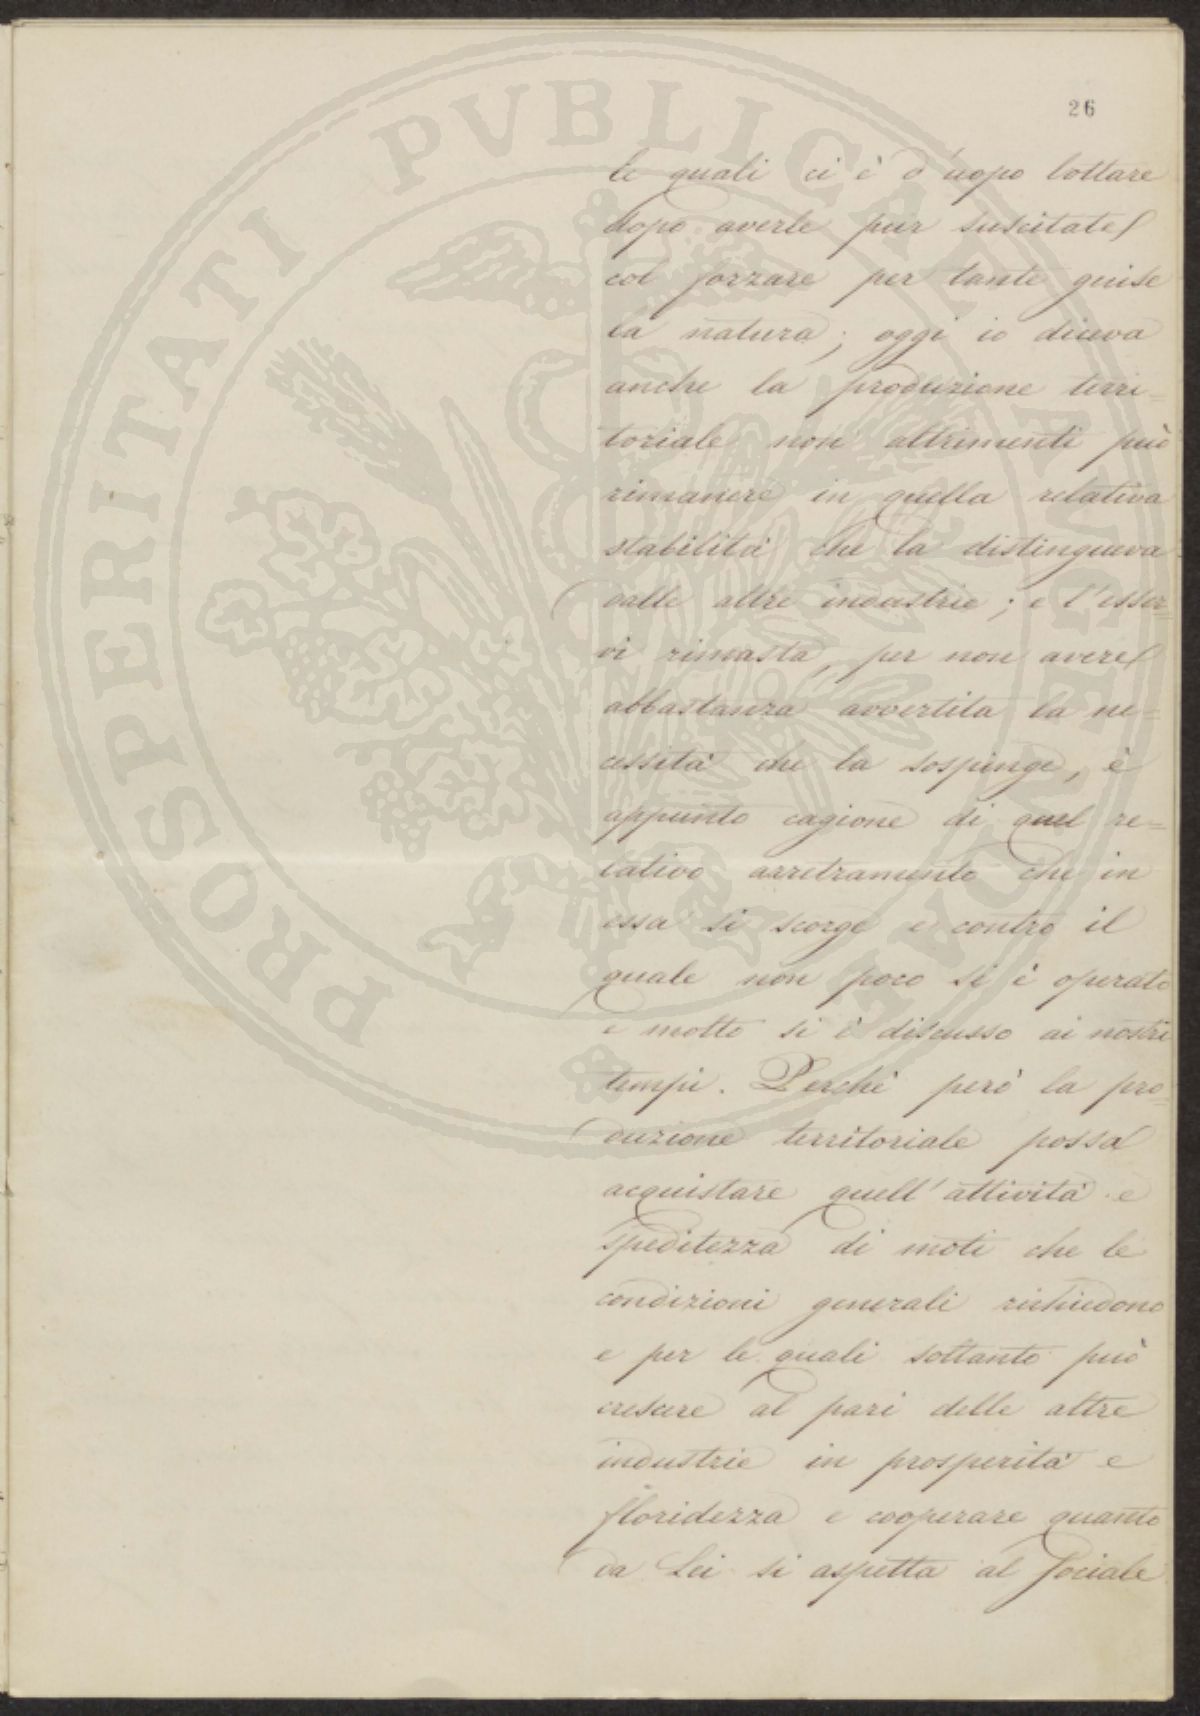 26
le quali ci è d'uopo lottare
dopo averle pur suscitate
col forzare per tante guise
la natura; oggi io diceva
anche la produzione terri=
toriale non altrimenti può
rimanere in quella relativa
stabilità che la distingueva
dalle altre industrie; e l'esser=
vi rimasta, per non avere
abbastanza avvertita la ne=
cessità che la sospinge, è
appunto cagione di quel re=
lativo arretramento che in
essa si scorge e contro il
quale non poco si è operato
e molto si è discusso ai nostri
tempi. Perchè però la pro=
duzione territoriale possa
acquistare quell'attività e
speditezza di moti che le
condizioni generali richiedono
e per le quali soltanto può
crescere al pari delle altre
industrie in prosperità e
floridezza e cooperare quanto
da Lei si aspetta al sociale
PROSPERITATI PVBLICAE AVGENDAE